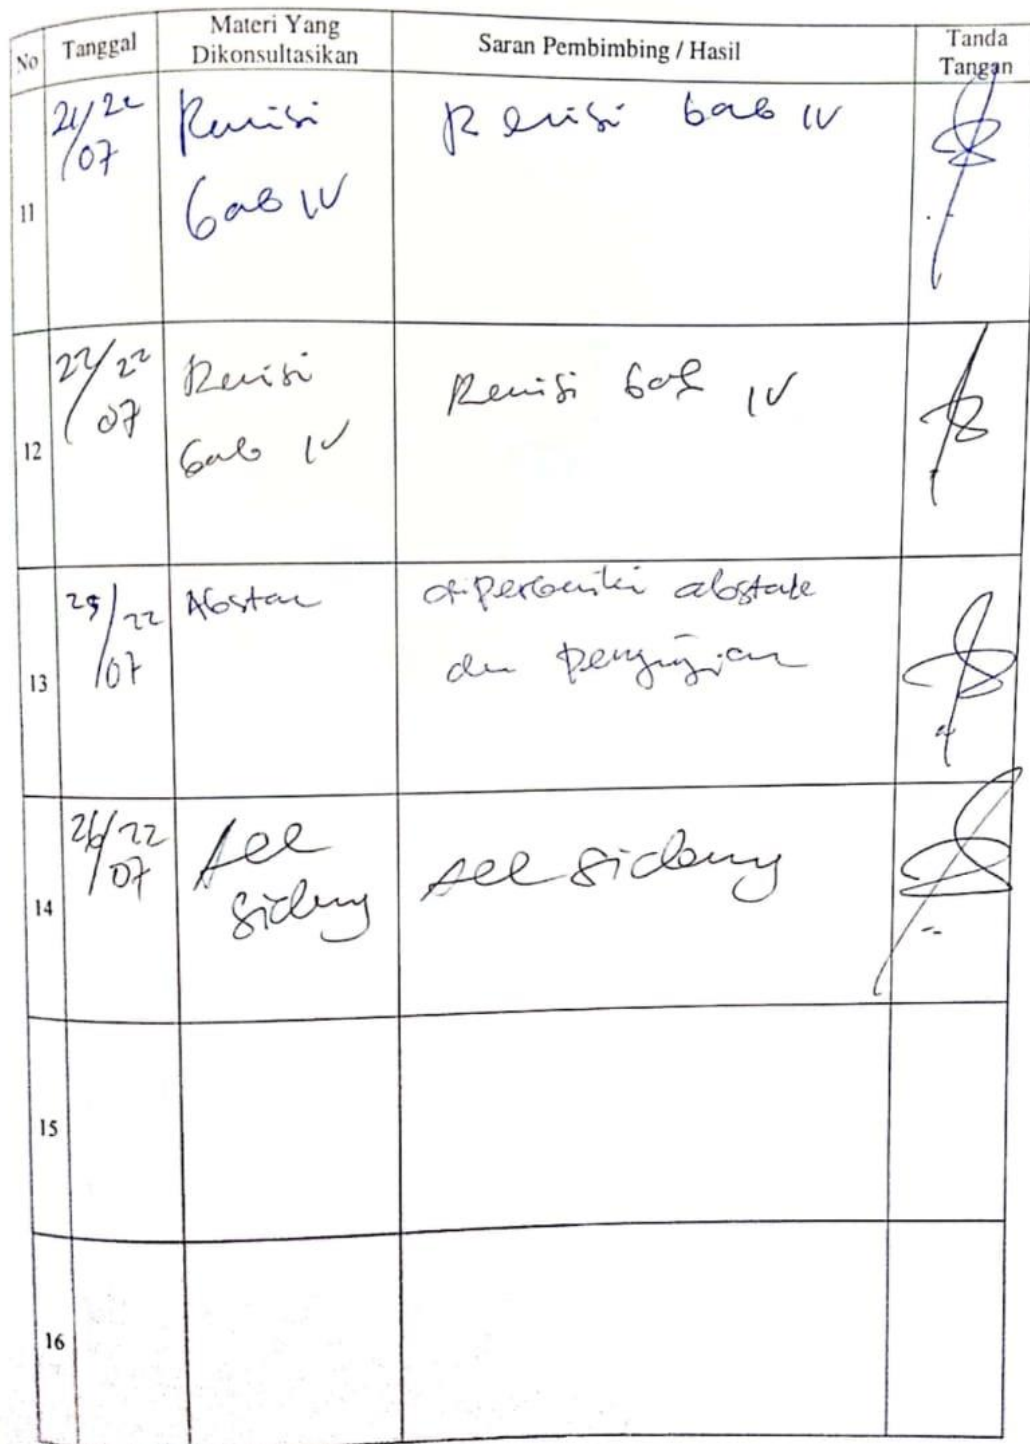 No Tanggal Materi Yang Dikonsultasikan Saran Pembimbing / Hasil Tanda Tangan
11 21/07 22 Revisi bab IV Revisi bab IV
12 22/07 22 Revisi bab IV Revisi bab IV
13 25/07 22 Abstrak diperbaiki abstrak
dan pengujian
14 26/07 22 Acc sidang Acc sidang
15
16